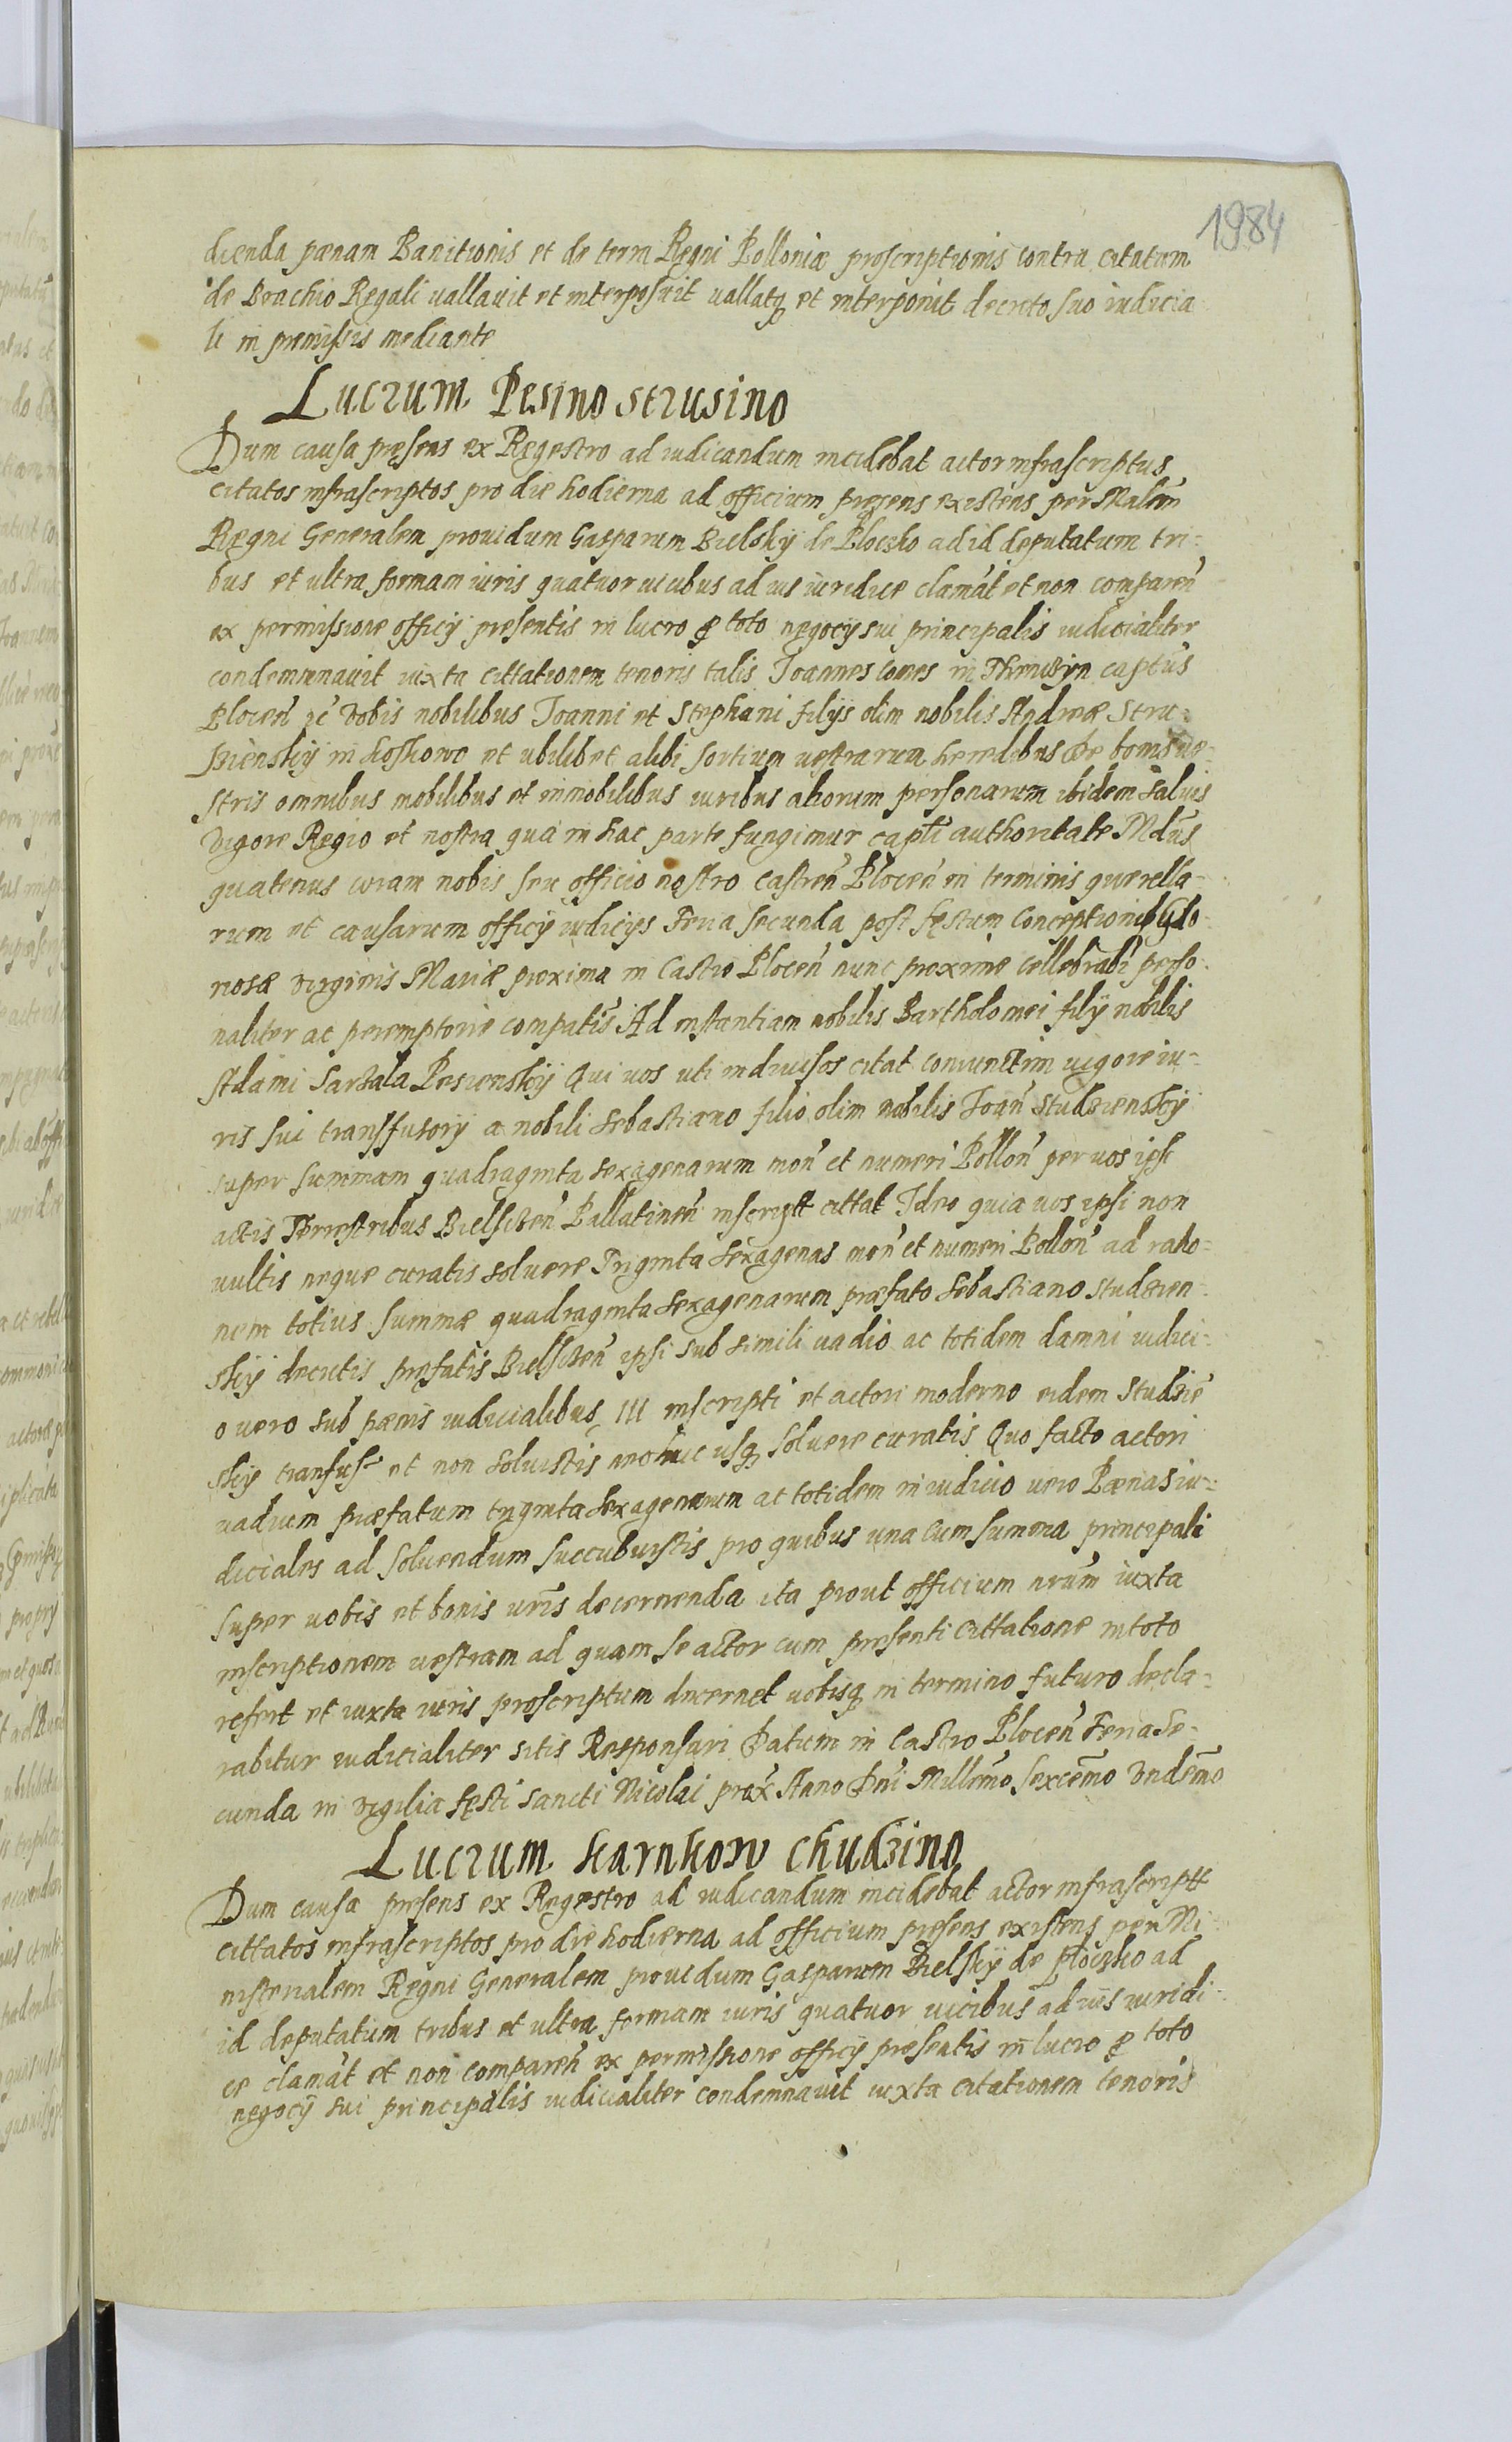 1984
dienda pænam Banitionis et de terrā Regni Polloniæ proscriptionis contra citatum
de Brachio Regali vallavit et interposuit vallatq et interponit decreto suo iudicia
li in præmissis mediante
Lucrum Pesino Strusino
Dum causa præsens ex Regestro ad iudicandum incidebat actor infrascriptus
citatos infrascriptos pro die hodierna ad officium præsens existens per Malem
Regni Generalem prouidum Gasparum Bielskÿ de Ploczko ad id deputatum tri-
bus et ultra formam iuris quatuor uicibus ad ius iuridice clamat et non comparen
ex permissione officÿ præsentis in lucro p toto negocÿ sui principalis iudicialiter
condemnavit iuxta cittationem tenoris talis Joannes comes in Thenczyn captus
Plocen zc Vobis nobilibus Joanni et Stephani filÿs olim nobilis Andreæ Stru-
sienskÿ in Koskowo et ubilibet alibi sortium uestrarum heredibus de bonis ue-
stris omnibus mobilibus et immobilibus iuribus aliorum personarum ibidem saluis
vigore Regio et nostra qua in hac parte fungimur capti authoritate Mdus
quatenus coram nobis seu officio nostro castren Plocen in terminis querella-
rum et causarum officÿ iudicÿs Feria secunda post festum Conceptionis Glo
riosæ virginis Mariæ proxima in Castro Plocen nunc proxime cellebrabi perso-
naliter ac peremptorie compatis Ad instantiam nobilis Bartholomei filÿ nobilis
Adami Sarzala Pesienskÿ Qui uos uti indiuisos citat coniunctim uigore iu-
ris sui transfusorÿ a nobili Sebastiano filio olim nobilis Joan Studzienskÿ
super summam quadraginta sexagenarum mon et numeri Pollon per uos ipsi
actis Terrestribus Bielscen Pallatinen inscript cittat Ideo quia uos ipsi non
uultis neque curatis soluere Triginta sexagenas mon et numeri Pollon ad ratio-
nem totius summæ quadraginta sexagenarum præfato Sebastiano Studzien-
skÿ decretis præfatis Bielscen ipsi sub simili uadio ac totidem damni iudici-
o uero sub pænis iudicialibus III inscripti et actori moderno eidem Studzie
skÿ transfuso et non soluistis neo huc usq soluere curatis Quo facto actori
uadium præfatum triginta sexagenarum ac totidem in iudicio uero Pænas iu-
diciales ad soluendum succubuistis pro quibus una cum summa principali
super uobis et bonis uris decernenda ita prout officium nrum iuxta
inscriptionem uestram ad quam se actor cum præsenti cittatione in toto
refert et iuxta iuris proscriptum decernet uobisq in termino futuro decla-
rabitur iudicialiter sitis Responsuri Datum in Castro Plocen Feria Se-
cunda in vigilia festi Sancti Nicolai prox Anno Dni Millmo sexcemo Undemo
Lucrum Karnkow Chudzino
Dum causa præsens ex Regestro ad iudicandum incidebat actor infrascriptt
cittatos infrascriptos pro die hodierna ad officium præsens existens per Mi-
nisterialem Regni Generalem prouidum Gasparum Bielskÿ de Ploczko ad
id deputatum tribus et ultra formam iuris quatuor uicibus ad ius iuridi-
ce clamat et non comparen ex permissione officÿ præsentis in lucro p toto
negocÿ sui principalis iudicialiter condemnavit iuxta citationem tenoris